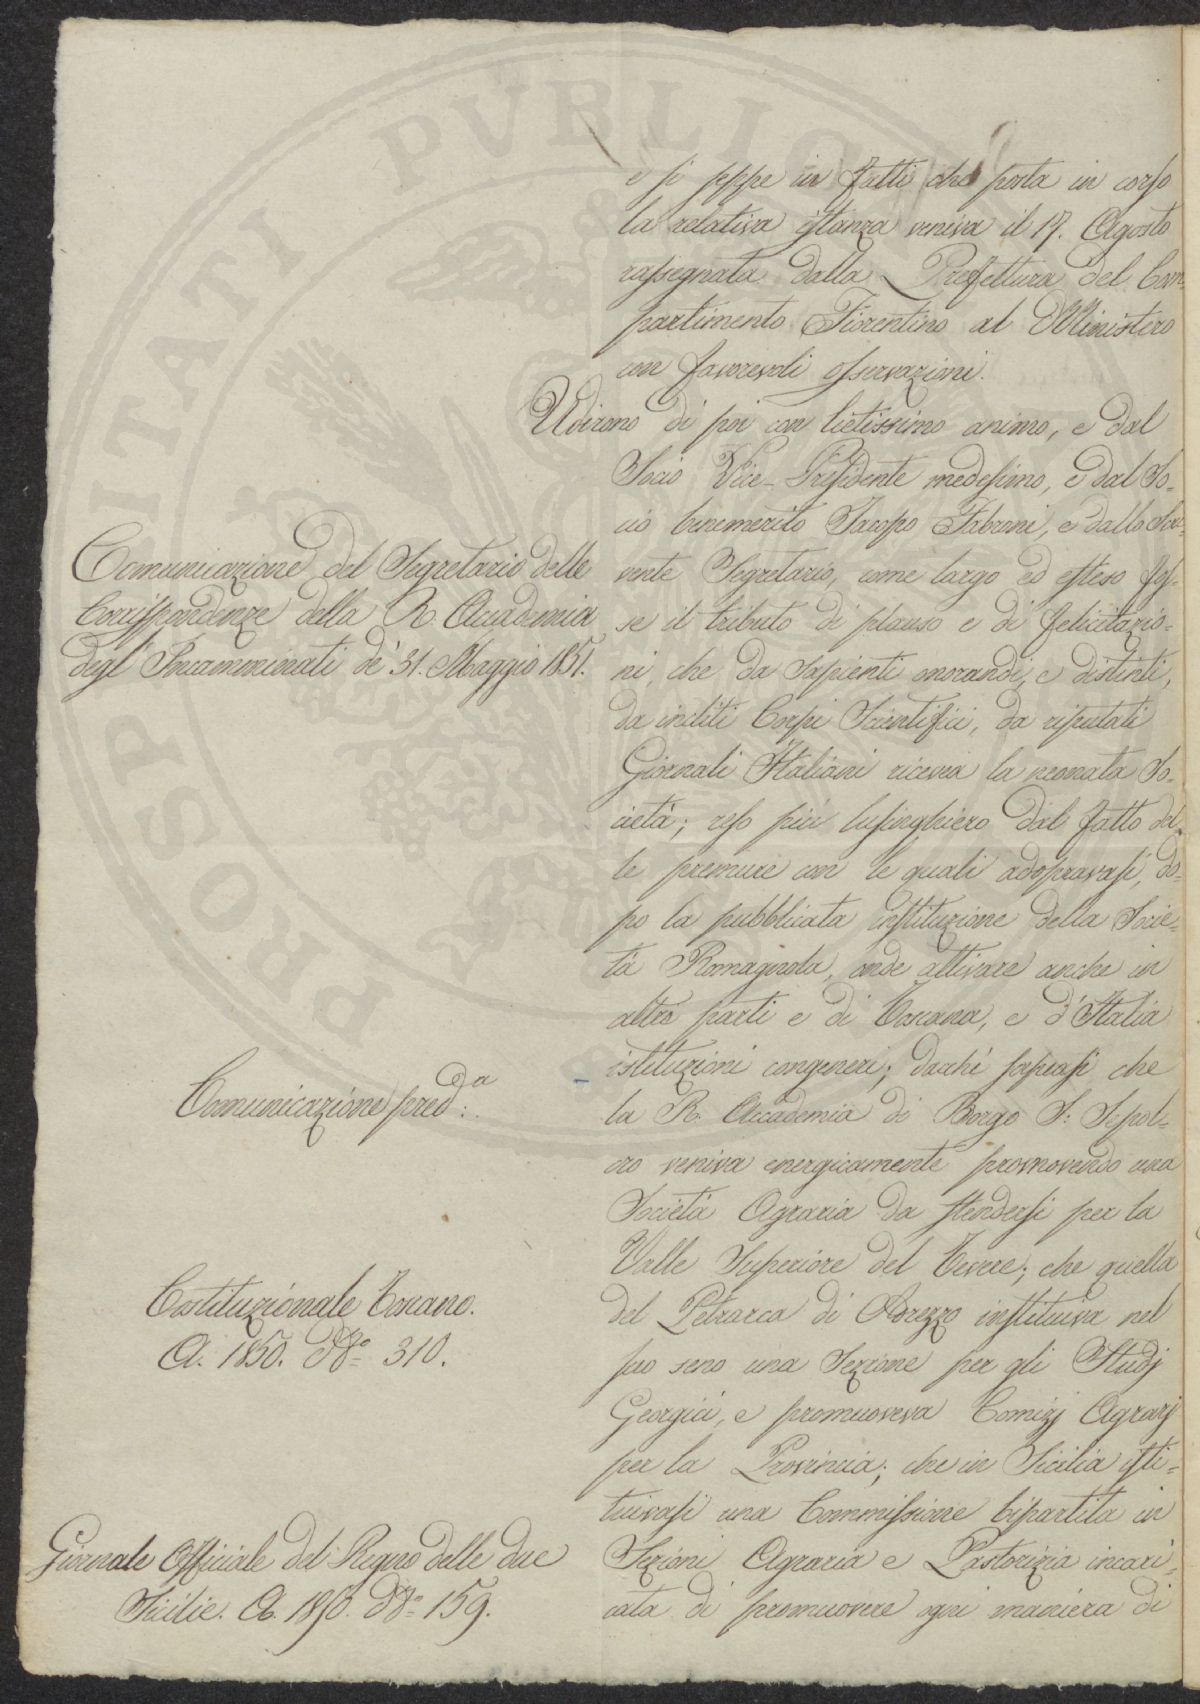 e si seppe in fatti che posta in corso
la relativa istanza veniva il 17. Agosto
rassegnata dalla Prefettura del Com-
partimento Fiorentino al Ministero
con favorevoli osservazioni.
Udirono di poi con lietissimo animo, e dal
Socio Vice-Presidente medesimo, e dal So-
cio benemerito Jacopo Fabroni, e dallo Scri-
vente Segretario, come largo ed esteso fos-
se il tributo di plauso e di felicitazio-
ni, che da Sapienti onorandi, e distinti,
da incliti Corpi Scientifici, da riputati
Giornali Italiani riceveva la neonata So-
cietà; reso più lusinghiero dal fatto del-
le premure con le quali adopravasi, do-
po la pubblicata instituzione della Socie-
tà Romagnola, onde attivare anche in
altre parti e di Toscana, e d'Italia
istituzioni congeneri; dacchè sapeasi che
la R. Accademia di Borgo S: Sepol-
cro veniva energicamente promovendo una
Società Agraria da stendersi per la
Valle Superiore del Tevere; che quella
del Petrarca di Arezzo instituiva nel
suo seno una Sezione per gli Studj
Georgici, e promuoveva Comizj Agrarj
per la Provincia; che in Sicilia isti-
tuivasi una Commissione bipartita in
Sezioni Agraria e Pastorizia incari-
cata di promuovere ogni maniera di
Comunicazione del Segretario delle
Corrispondenze della R. Accademia
degl' Incamminati de' 31. Maggio 1851.
Comunicazione pred:a
Costituzionale Toscano.
A. 1850. No= 310.
Giornale Officiale del Regno delle due
Sicilie. A. 1850. No= 159.
PROSPERITATI PVBLIC